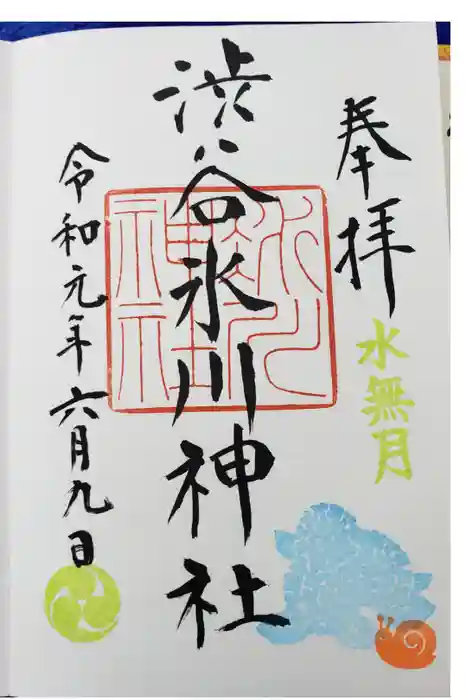 奉拝
水無月
渋谷氷川神社
令和元年六月九日